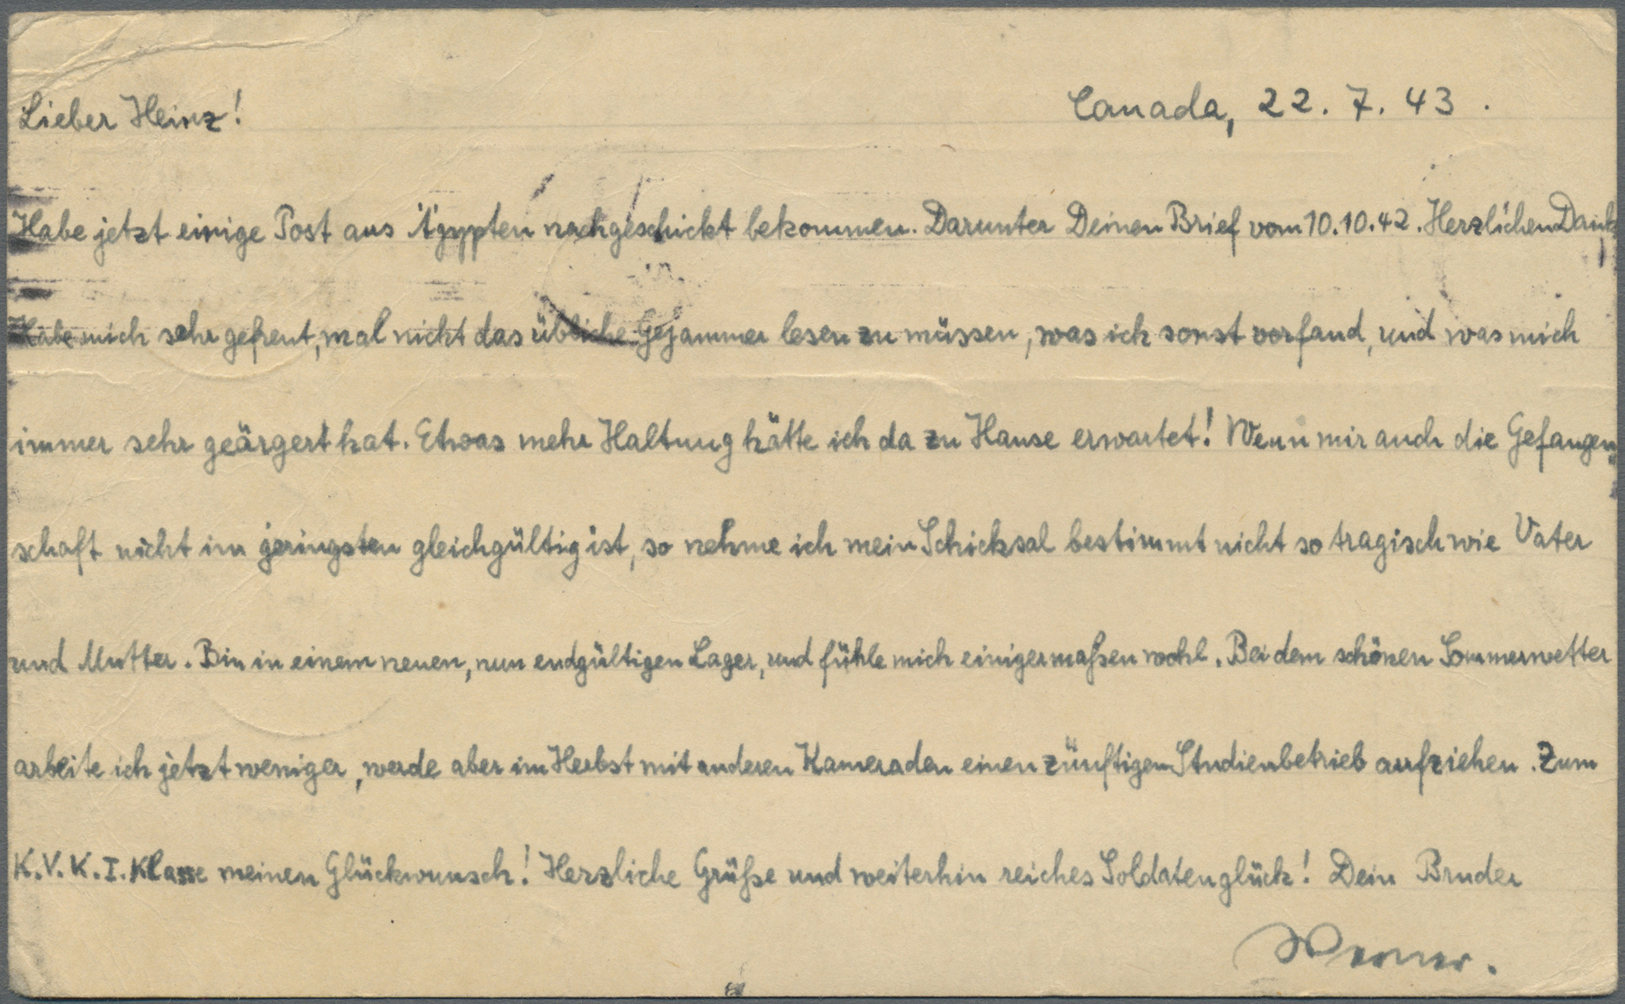 Lieber Heinz! Canada, 22.7.43.
Habe jetzt einige Post aus Ägypten nachgeschickt bekommen. Darunter Deinen Brief vom 10.10.42. Herzlichen Dank
Habe mich sehr gefreut, mal nicht das übliche Gejammer lesen zu müssen, was ich sonst vorfand, und was mich
immer sehr geärgert hat. Etwas mehr Haltung hätte ich da zu Hause erwartet! Wenn mir auch die Gefangen-
schaft nicht im geringsten gleichgültig ist, so nehme ich mein Schicksal bestimmt nicht so tragisch wie Vater
und Mutter. Bin in einem neuen, nun endgültigen Lager, und fühle mich einigermaßen wohl. Bei dem schönen Sommerwetter
arbeite ich jetzt weniger, werde aber im Herbst mit anderen Kameraden einen zünftigen Studienbetrieb aufziehen. Zum
K.V.K.I. Klasse meinen Glückwunsch! Herzliche Grüße und weiterhin reiches Soldatenglück! Dein Bruder
Werner.